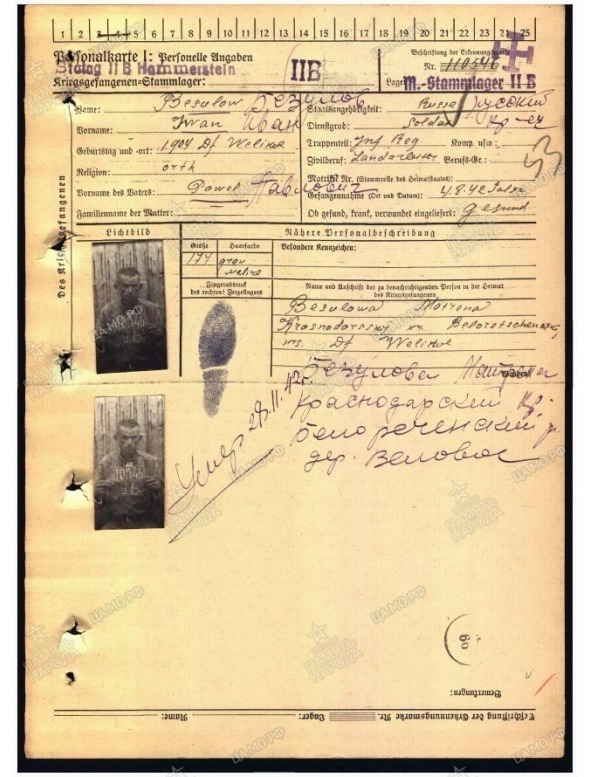 1 2 3 4 5 6 7 8 9 10 11 12 13 14 15 16 17 18 19 20 21 22 23 24 25
Personalkarte I: Personelle Angaben
Beschriftung der Erkennungsmarke
Stalag II B Hammerstein
IIB
Nr. 110546
Kriegsgefangenen-Stammlager:
Lager: M.-Stammlager II B
Des Kriegsgefangenen
Name: Besulow Безулов
Staatsangehörigkeit: Russe русский
Vorname: Iwan Иван
Dienstgrad: Soldat кр-ец
Geburtstag und -ort: 1904 Df Welikoe
Truppenteil: Inf Reg Komp. usw.:
Religion: orth
Zivilberuf: Berufs-Gr.:
Matrikel Nr. (Stammrolle des Heimatstaates):
Vorname des Vaters: Pawel Павлович
Gefangennahme (Ort und Datum): 4.8.42
Familienname der Mutter:
Ob gesund, krank, verwundet eingeliefert: gesund
Lichtbild
Nähere Personalbeschreibung
Größe Haarfarbe Besondere Kennzeichen:
174 grau
Fingerabdruck des rechten! Zeigefingers
Name und Anschrift der zu benachrichtigenden Person in der Heimat des Kriegsgefangenen
Besulowa Motrena
Krasnodarsskj Beloretschensk
Df
Безулова
Краснодарский кр.
белореченский р.
дер. Веловое
Умер 28.11.42г.
10546
II B
60
Bemerkungen:
Beschriftung der Erkennungsmarke Nr. Lager: Name:
ЦАМО.РФ
ПАМЯТЬ НАРОДА